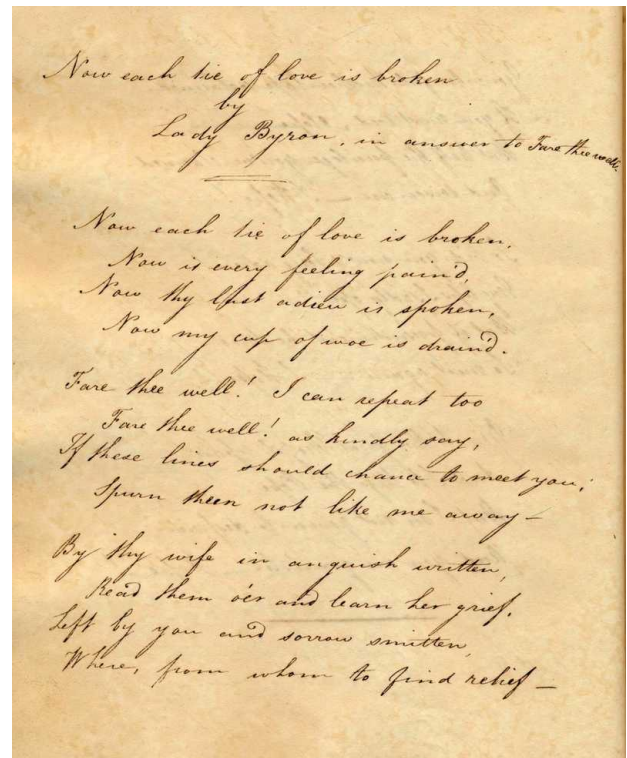 Now each tie of love is broken
by
Lady Byron, in answer to Fare thee well.
Now each tie of love is broken,
Now is every feeling pain'd,
Now thy last adieu is spoken,
Now my cup of woe is drain'd.
Fare thee well! I can repeat too
Fare thee well! as kindly say,
If these lines should chance to meet you,
Spurn them not like me away—
By thy wife in anguish written,
Read them o'er and learn her grief,
Left by you and sorrow smitten,
Where, from whom to find relief—